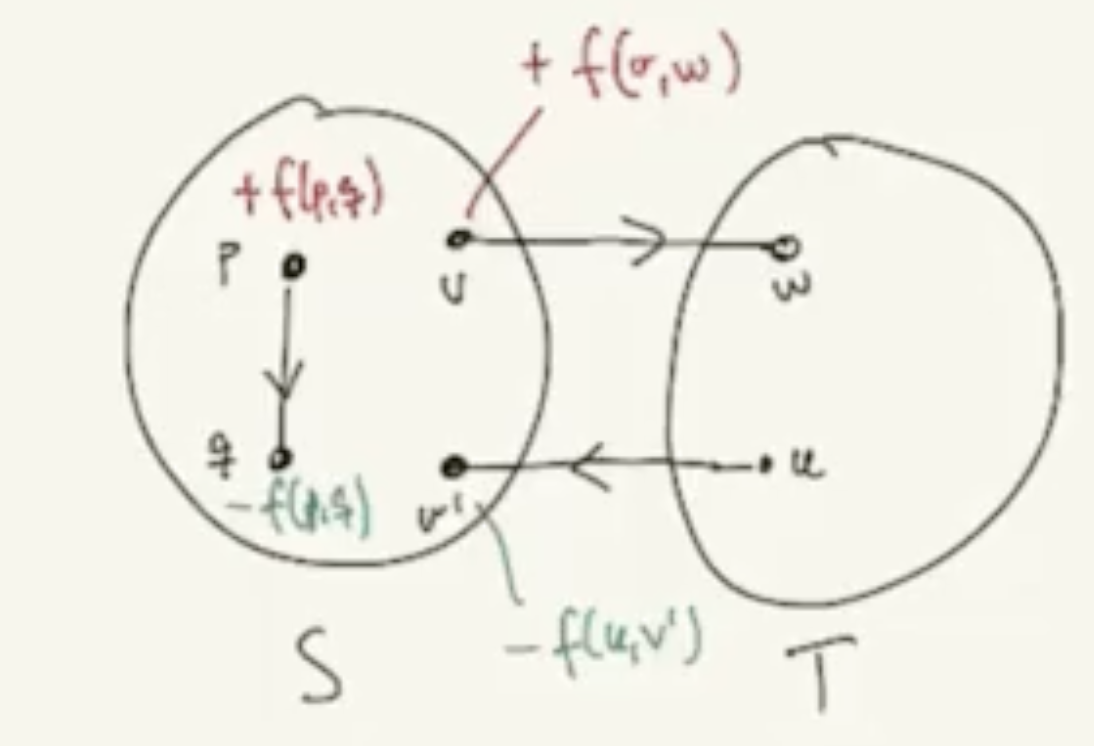 + f(v,w)
+ f(p,q)
p
v
w
q
v'
u
- f(p,q)
- f(u,v')
S
T